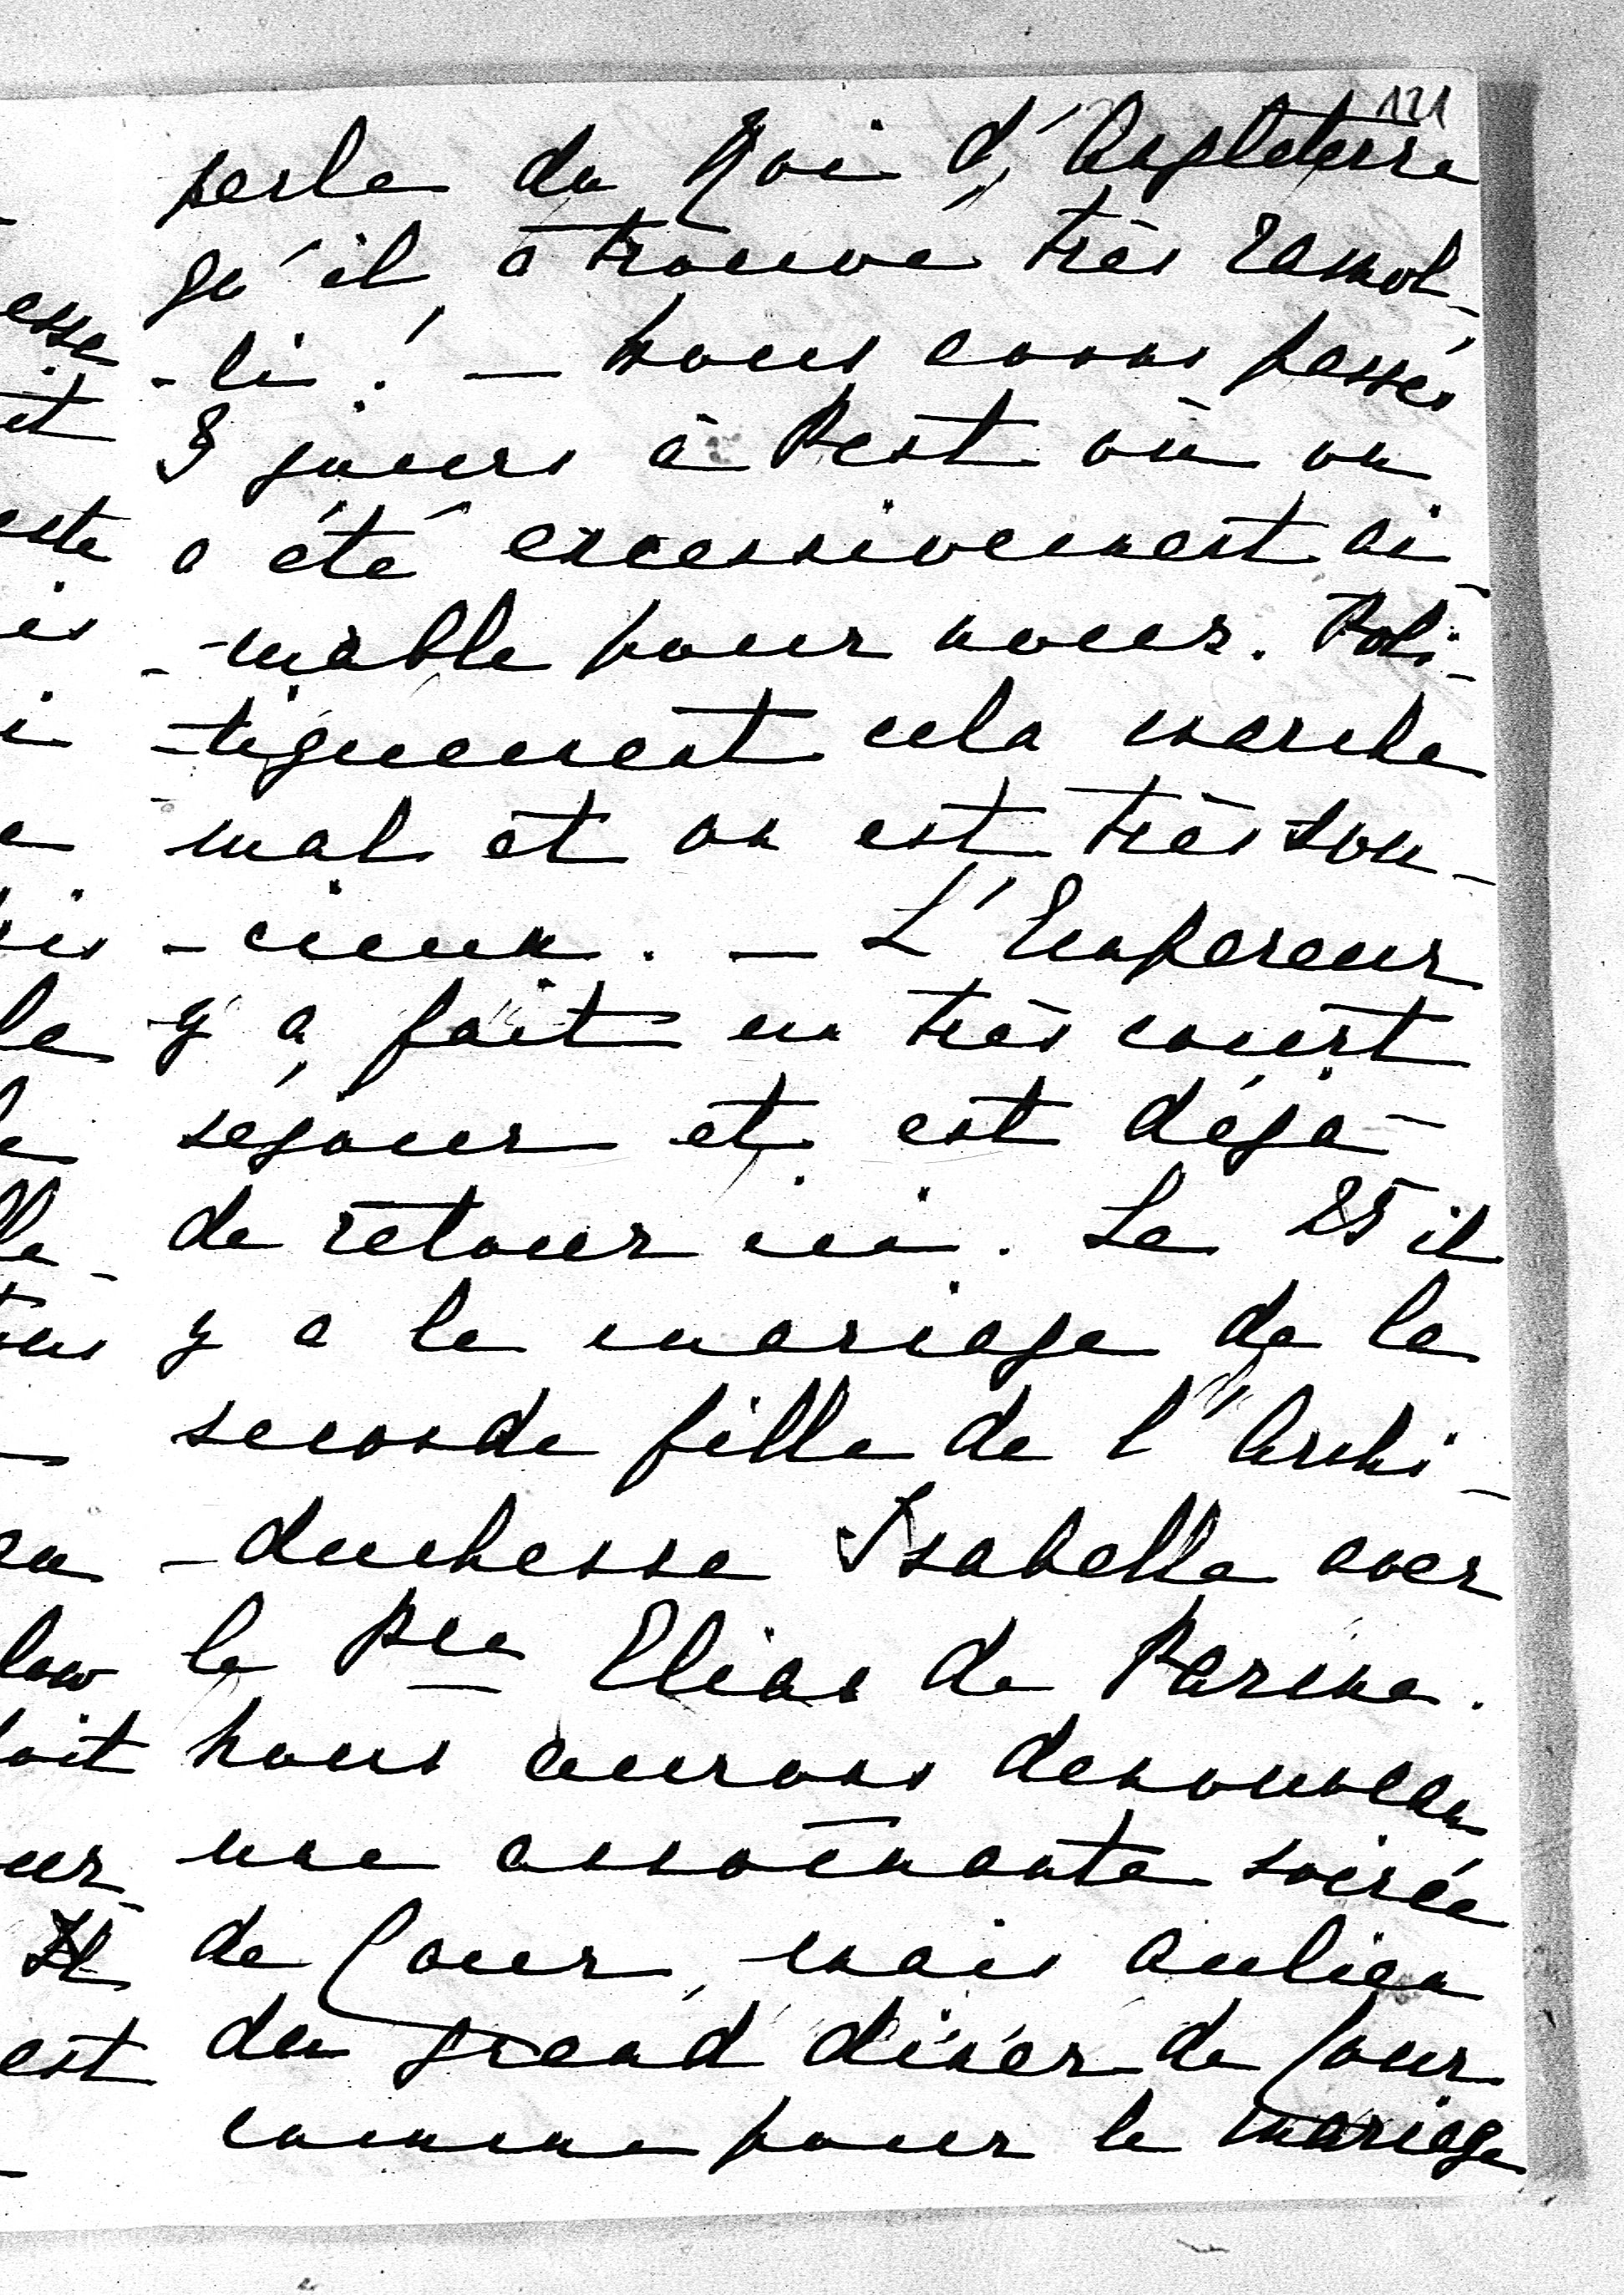 121
parle du Roi d'Angleterre
qu'il a trouvé très ramol-
-li! — Nous avons passés
8 jours à Pest où on
a été excessivement ai-
-mable pour nous. Poli-
-tiquement cela marche
mal et on est très sou-
-cieux. — L'Empereur
y a fait un très court
séjour et est déjà
de retour ici. Le 25 il
y a le mariage de la
seconde fille de l'Archi-
-duchesse Isabelle avec
le Pce Elias de Parme.
Nous aurons denouveau
une assomante soirée
de Cour, mais aulieu
du grand diner de Cour
comme pour le mariage